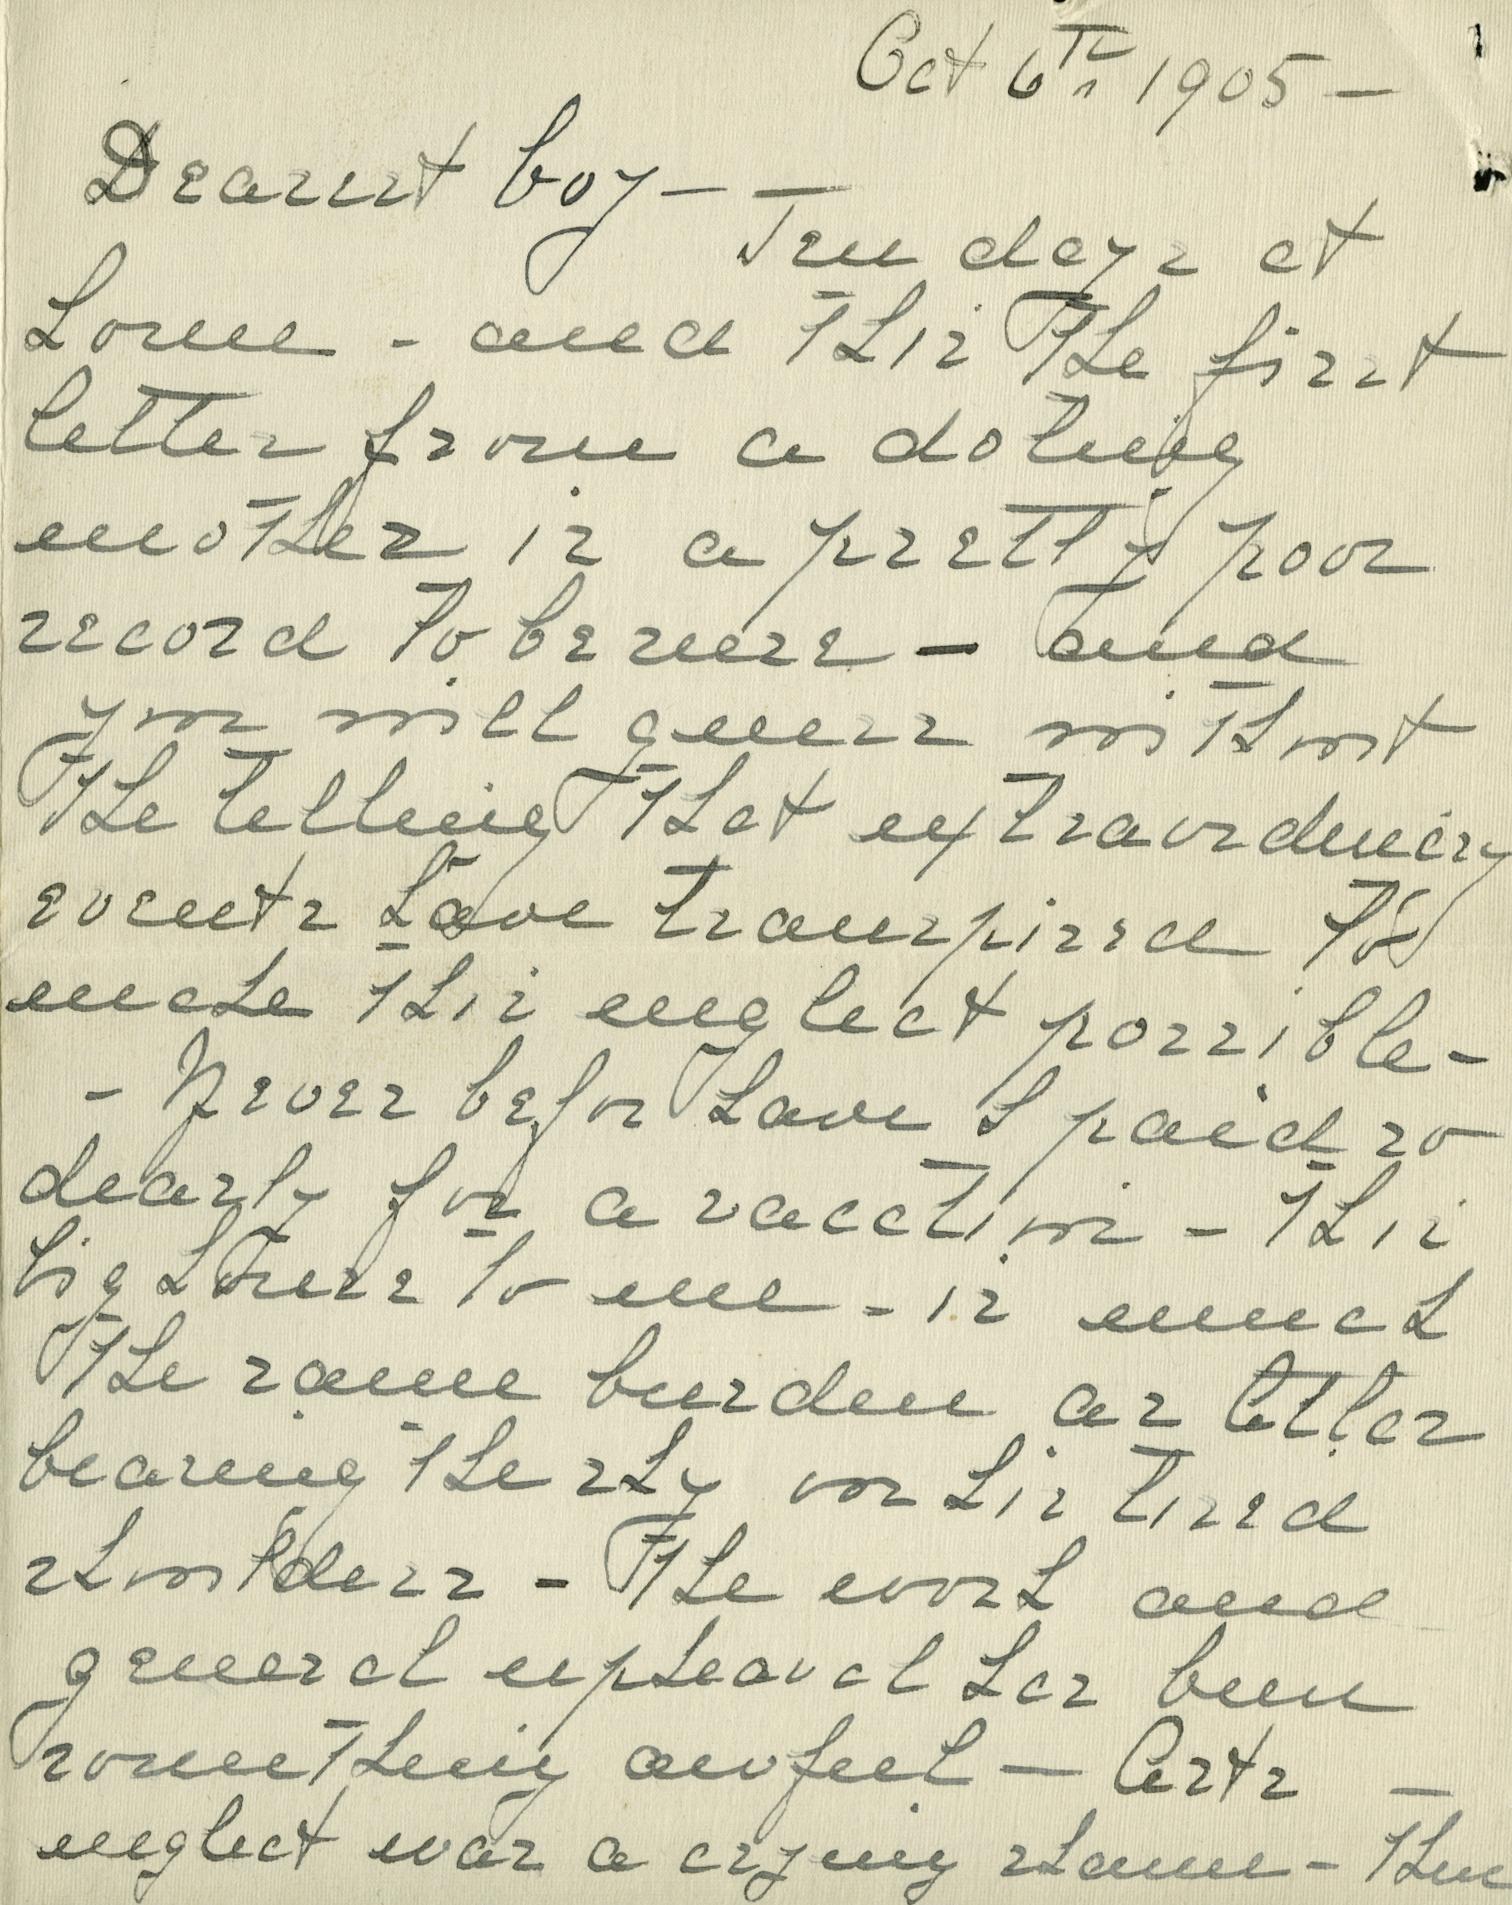 Oct 6th 1905 –
Dearest boy – – Ten days at
home – and this the first
letter from a doting
mother is a pretty poor
record to be sure – and
you will guess without
the telling that extraordinary
events have transpired to
make this neglect possible –
– Never before have I paid so
dearly for a vacation – this
big house to me – is much
the same burden as Atlas
bearing the sky on his tired
shoulders – The work and
general upheaval has been
something awful – Arts –
neglect was a crying shame – then